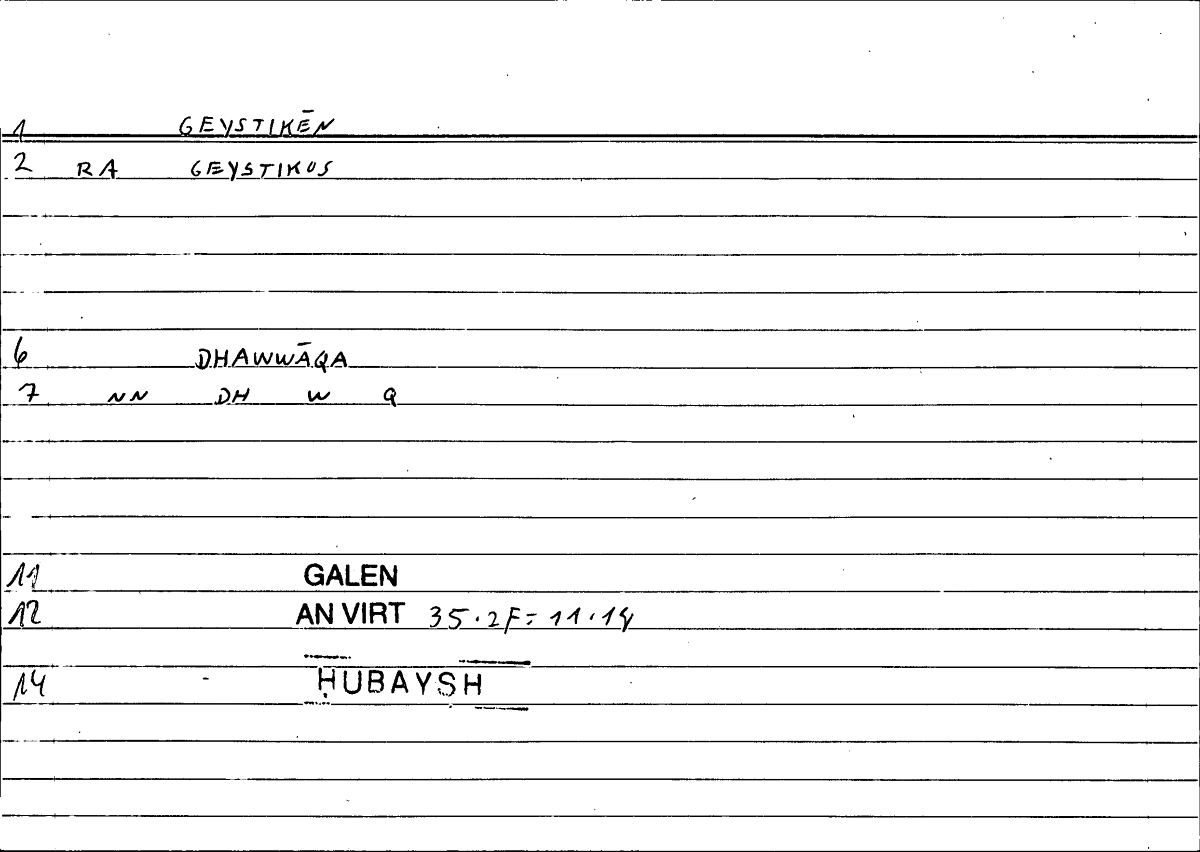 1 GEYSTIKĒN
2 RA GEYSTIKOS
6 DHAWWĀQA
7 NN DH W Q
11 GALEN
12 AN VIRT 35.2F= 11.14
14 - ḤUBAYSH